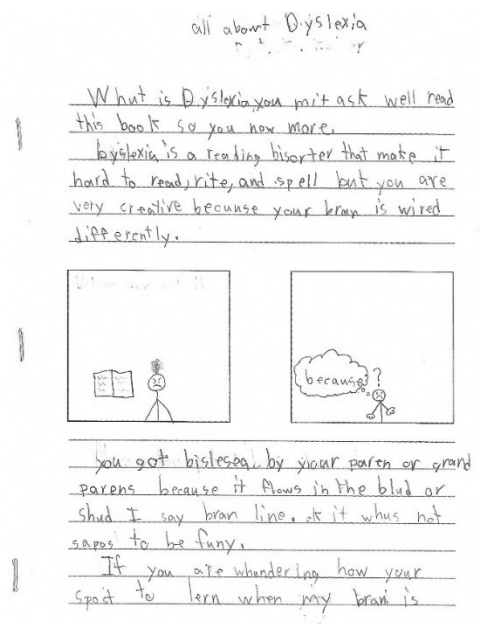 all about Dyslexia
Whut is Dyslexia you mit ask well read
this book so you now more.
byslexia is a reading bisorter that make it
hard to read, rite, and spell but you are
very creative becuase your bran is wired
differently.
because
?
you got bislesea by your paren or grand
parens because it flows in the blud or
shud I say bran line. ok it whus not
sapos to be funy.
If you are whundering how your
spost to lern when my bran is